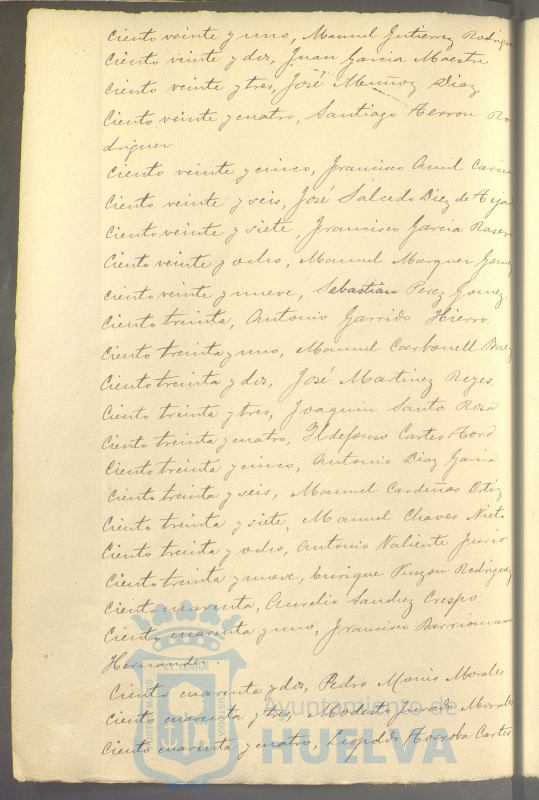 Ciento veinte y uno, Manuel Gutierrez Rodrigu
Ciento veinte y dos, Juan Garcia Maestre
Ciento veinte y tres, José Muñoz Diaz
Ciento veinte y cuatro, Santiago Terron Ro
driguez
Ciento veinte y cinco, Francisco
Ciento veinte y seis, José Salcedo Diez de Teja
Ciento veinte y siete, Francisco Garcia
Ciento veinte y ocho, Manuel Marquez Gomez
Ciento veinte y nueve, Sebastián Perez Gomez.
Ciento treinta, Antonio Garrido Hierro.
Ciento treinta y uno, Manuel Carbonell Baez
Ciento treinta y dos, José Martinez Reyes.
Ciento treinta y tres, Joaquin Santos Rosa
Ciento treinta y cuatro, Ildefonso Cartes Toro
Ciento treinta y cinco, Antonio Diaz Garcia
Ciento treinta y seis, Manuel Cardeñas Ortiz
Ciento treinta y siete, Manuel Chaves Niet
Ciento treinta y ocho, Antonio Valiente
Ciento treinta y nueve, Enrique Pinzon Rodriguez
Ciento cuarenta, Aurelio Sanchez Crespo.
Ciento cuarenta y uno, Francisco Barrionue
Hernandez.
Ciento cuarenta y dos, Pedro Morales
Ciento cuarenta y tres, Modesto Jurado Morale
Ciento cuarenta y cuatro, Leopoldo Cartes
Ayuntamiento de
HUELVA